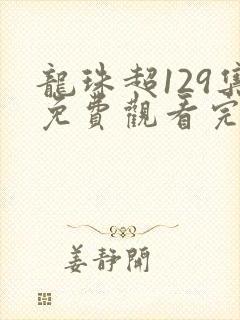 龍珠超129集
免費觀看完
姜靜開